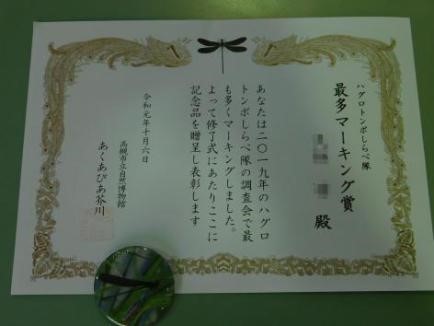 ハグロトンボしらべ隊
最多マーキング賞
殿
あなたは二〇一九年のハグロ
トンボしらべ隊の調査会で最
も多くマーキングしました。
よって修了式にあたりここに
記念品を贈呈し表彰します
令和元年十月六日
高槻市立自然博物館
あくあぴあ芥川